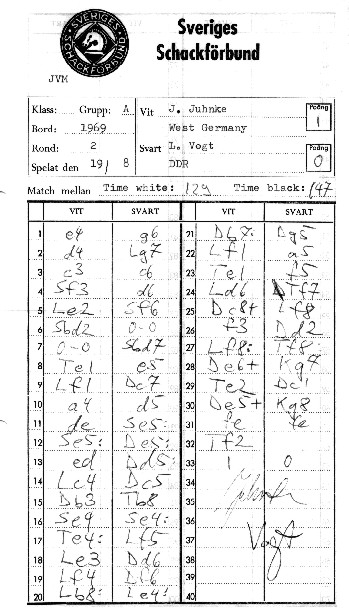 SVERIGES
SCHACKFÖRBUND
Sveriges
Schackförbund
JVM
Klass: Grupp: A
Bord: 1969
Rond: 2
Spelat den 19/ 8
Vit J. Juhnke
West Germany
Svart L. Vogt
DDR
Poäng
1
Poäng
0
Match mellan Time white: 129 Time black: 147
VIT SVART VIT SVART
1 e4 g6 21 Db7: Dg5
2 d4 Lg7 22 Lf1 a5
3 c3 c6 23 Te1 f5
4 Sf3 d6 24 Ld6 Tf7
5 Le2 Sf6 25 Dc8+ Lf8
6 Sbd2 0-0 26 f3 Dd2
7 0-0 Sbd7 27 Lf8: Tf8:
8 Te1 e5 28 De6+ Kg7
9 Lf1 Dc7 29 Te2 Dc1
10 a4 d5 30 De5+ Kg8
11 de Se5: 31 fe fe
12 Se5: De5: 32 Tf2
13 ed Dd5: 33 1 0
14 Lc4 Dc5 34
15 Db3 Tb8 35 Juhnke
16 Se4 Se4: 36
17 Te4: Lf5 37 Vogt
18 Le3 Dd6 38
19 Lf4 Df6 39
20 Lb8: Le4: 40